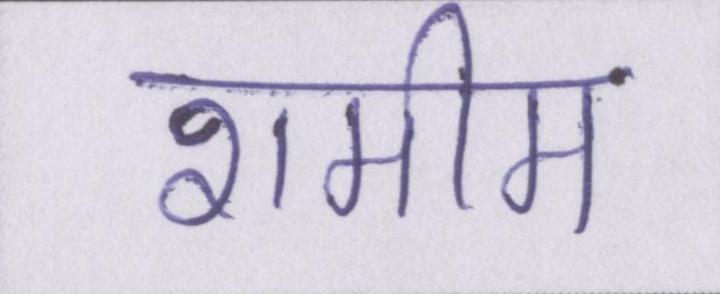 शमीम